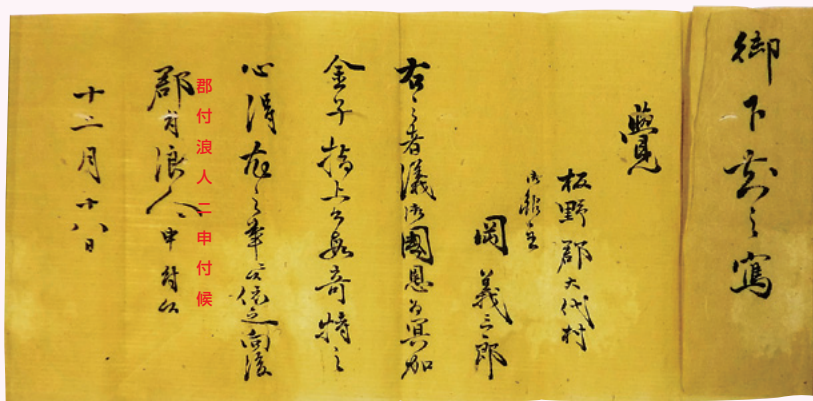 御下知之寫
覺
板野郡大代村
岡義三郎
右之者儀御國恩為冥加
金子指上公段奇特之
心得有之事ニ候依之向後
郡付浪人ニ申付候
郡付浪人申付候
十二月十八日